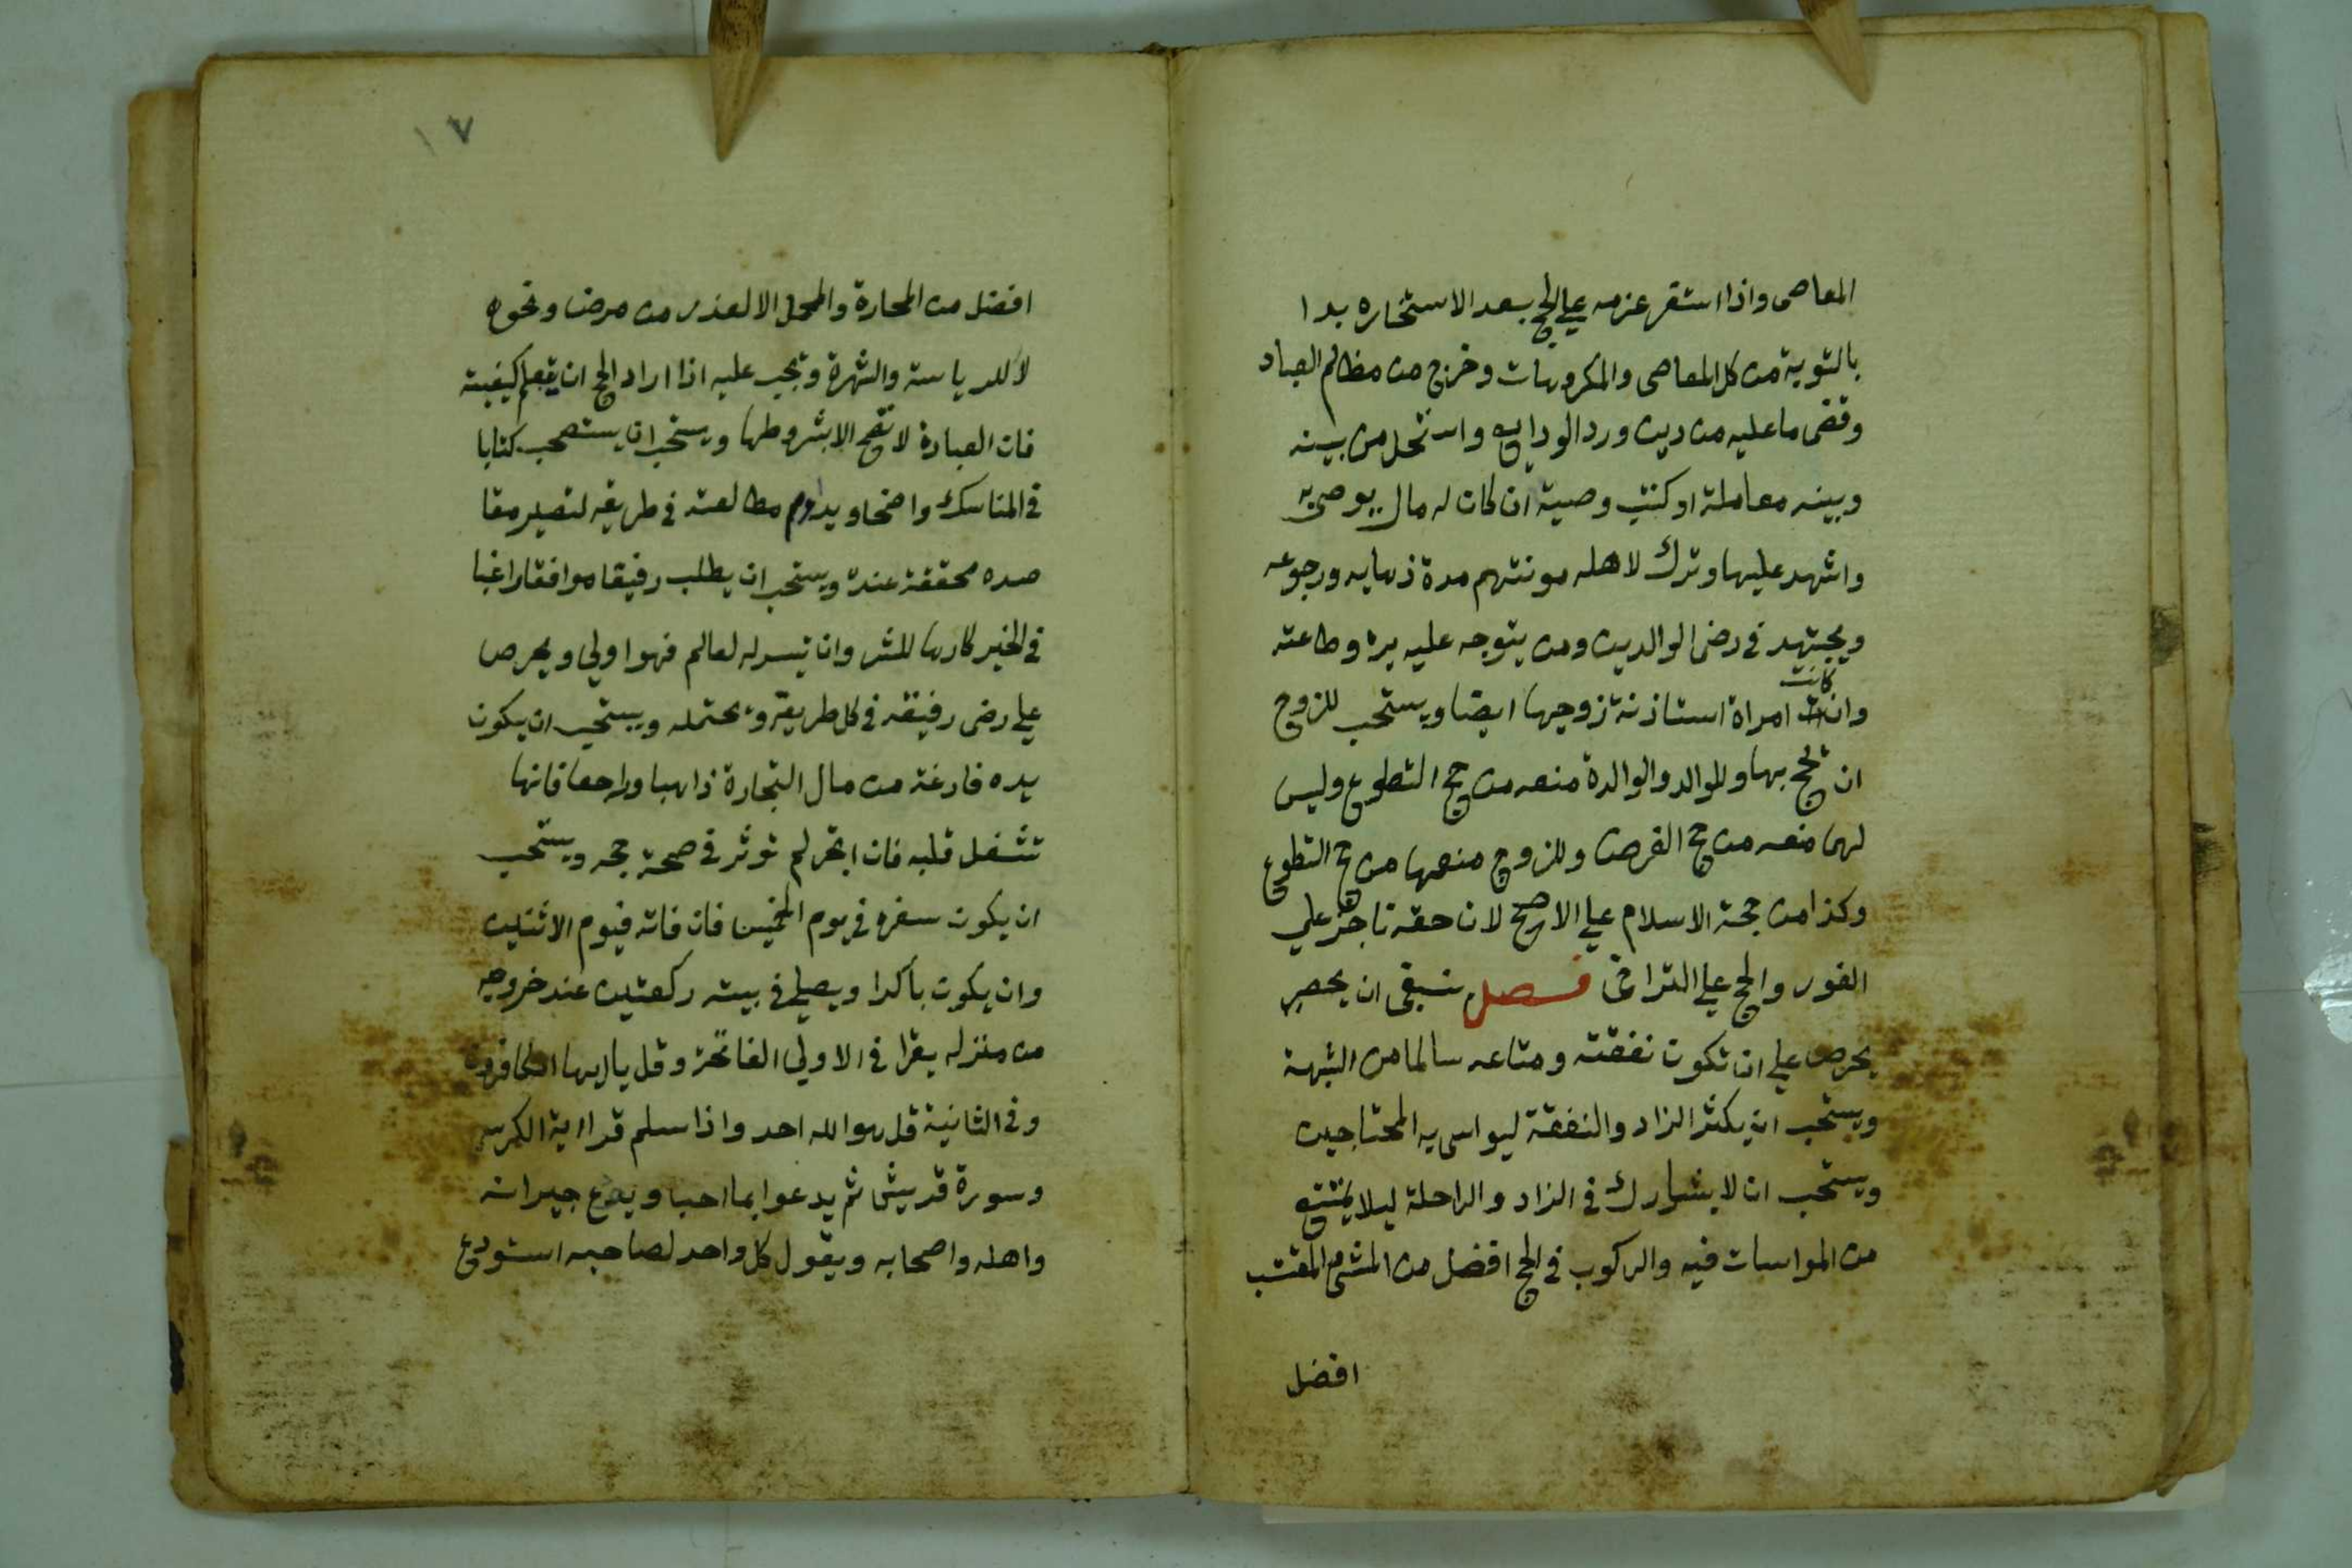 المعاصى واذا استقر عزمه علي الحج بعد الاستخاره بدا
بالتوبة من كل المعاصى والمكروهات وخرج من مظالم العباد
وقضى ما عليه من دين ورد الودايع واستحل من بينه
وبينه معاملة او كتب وصية ان كان له مال يوصى به
واشهد عليها وترك لاهله مونتهم مدة ذهابه ورجوعه
ويجتهد في رضى الوالدين ومن يتوجه عليه بره وطاعته
وان كانت امراة استاذنة زوجها ايضا ويستحب للزوج
ان يحج بها وللوالد والوالدة منعه من حج التطوع وليس
لهما منعه من حج الفرض وللزوج منعها من حج التطوع
وكذا من حجة الاسلام علي الاصح لان حقه ناجز علي
الفور والحج علي التراخى فصل ينبغى ان
يحرص علي ان تكون نفقته ومتاعه سالما من الشبهة
ويستحب ان يكثر الزاد والنفقة ليواسى به المحتاجين
ويستحب ان لا يشارك في الزاد والراحلة ليلا يمتنع
من المواسات فيه والركوب في الحج افضل من المشي والمقتب
افضل
١٧
افضل من المحارة والمحمل الا لعذر من مرض ونحوه
لا للرياسة والشهرة ويجب عليه اذا اراد الحج ان يتعلم كيفيته
فان العبادة لا تصح الا بشروطها ويستحب ان يستصحب كتابا
في المناسك واضحا ويداوم مطالعته في طريقه لتصير مقا
صده محققة عنده ويستحب ان يطلب رفيقا موافقا راغبا
في الخير كارها للشر وان تيسر له لعالم فهو اولي ويحرص
علي رضى رفيقه في كل طريقه ويحتمله ويستحب ان يكون
يده فارغة من مال التجارة ذاهبا وراجعا فانها
تشغل قلبه فان اتجر لم توثر في صحة حجه ويستحب
ان يكون سفره في يوم الخميس فان فاته فيوم الاثنين
وان يكون باكرا ويصلي في بيته ركعتين عند خروجه
من منزله يقرا في الاولي الفاتحة وقل يا ايها الكافرون
وفي الثانية قل هو الله احد واذا سلم قرا اية الكرسي
وسورة قريش ثم يدعوا بما احب ويودع جيرانه
واهله واصحابه ويقول كل واحد لصاحبه استودع